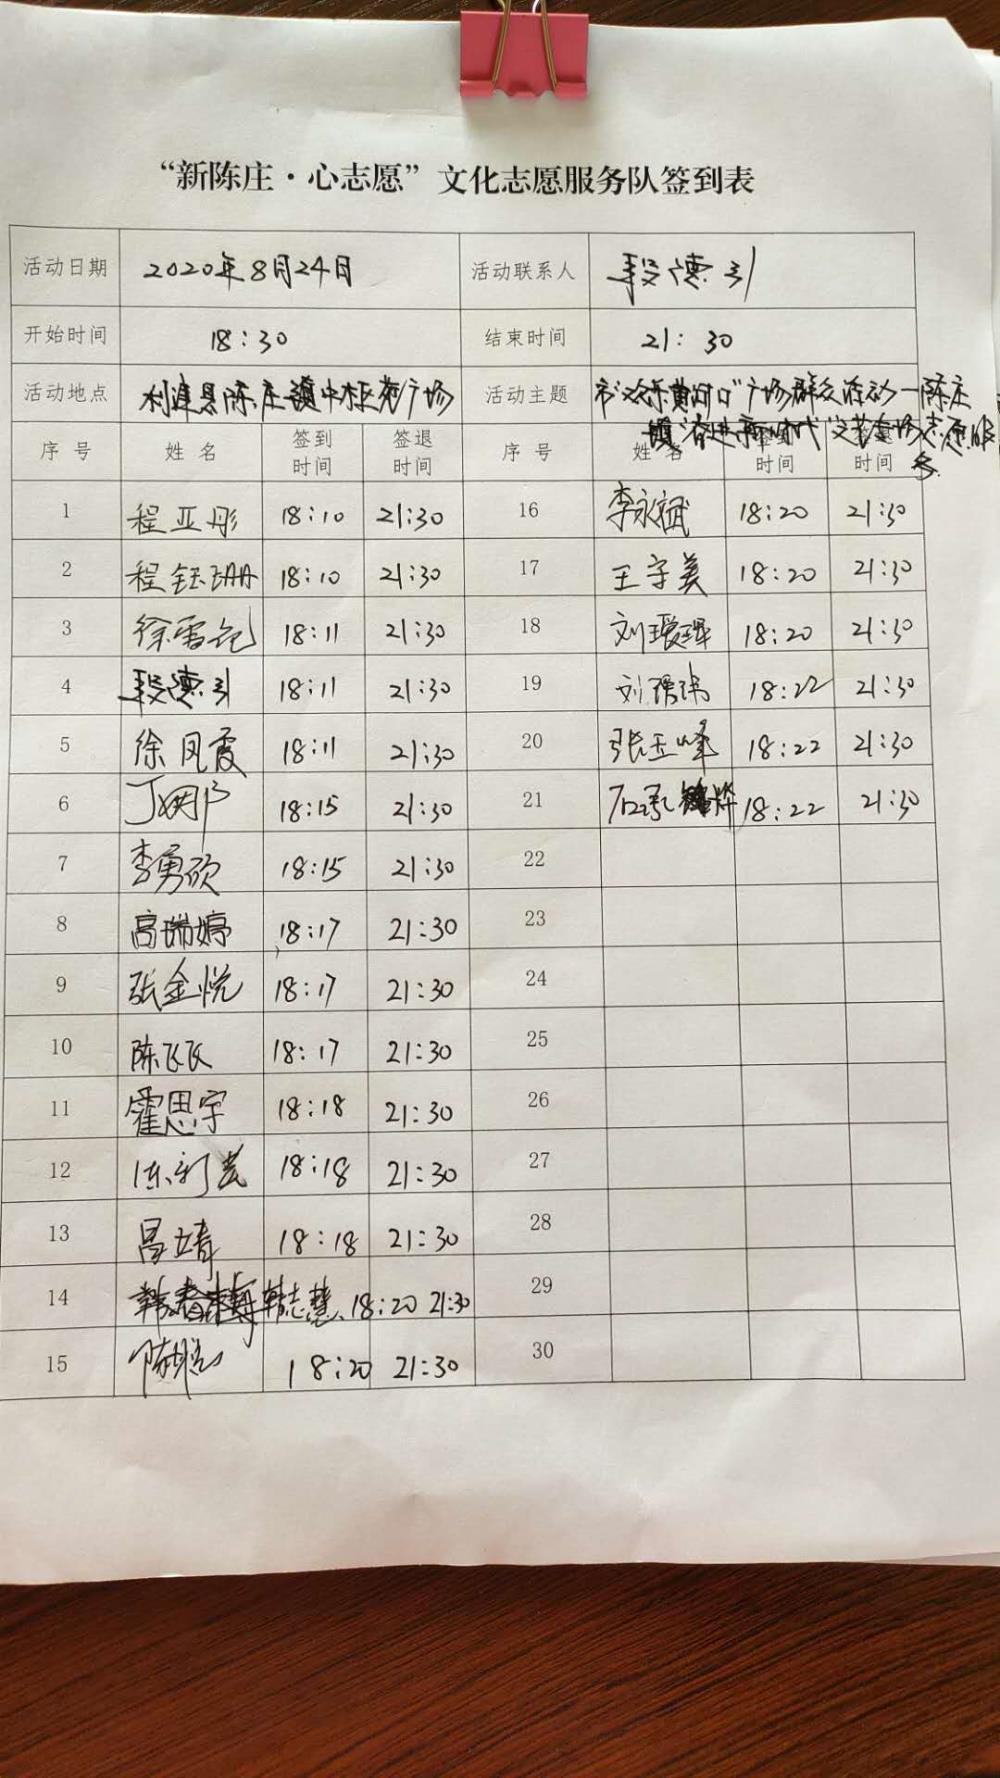 “新陈庄·心志愿”文化志愿服务队签到表
活动日期 2020年8月24日 活动联系人 段德引
开始时间 18:30 结束时间 21:30
活动地点 利津县陈庄镇中柜苑广场 活动主题 市“欢乐黄河口”广场群众活动—陈庄
镇“奋进新时代”文艺专场志愿服
务
序号 姓名 签到时间 签退时间 序号 姓名 时间 时间
1 程亚彤 18:10 21:30 16 李永斌 18:20 21:30
2 程钰珊 18:10 21:30 17 王宇美 18:20 21:30
3 徐雪 18:11 21:30 18 刘瑷珲 18:20 21:30
4 段德引 18:11 21:30 19 刘 18:22 21:30
5 徐凤霞 18:11 21:30 20 张玉峰 18:22 21:30
6 丁娜 18:15 21:30 21 石承烨 18:22 21:30
7 李勇欣 18:15 21:30 22
8 高瑞婷 18:17 21:30 23
9 张金悦 18:17 21:30 24
10 陈飞飞 18:17 21:30 25
11 霍思宇 18:18 21:30 26
12 陈新芸 18:18 21:30 27
13 吕靖 18:18 21:30 28
14 韩志慧 18:20 21:30 29
15 陈 18:20 21:30 30